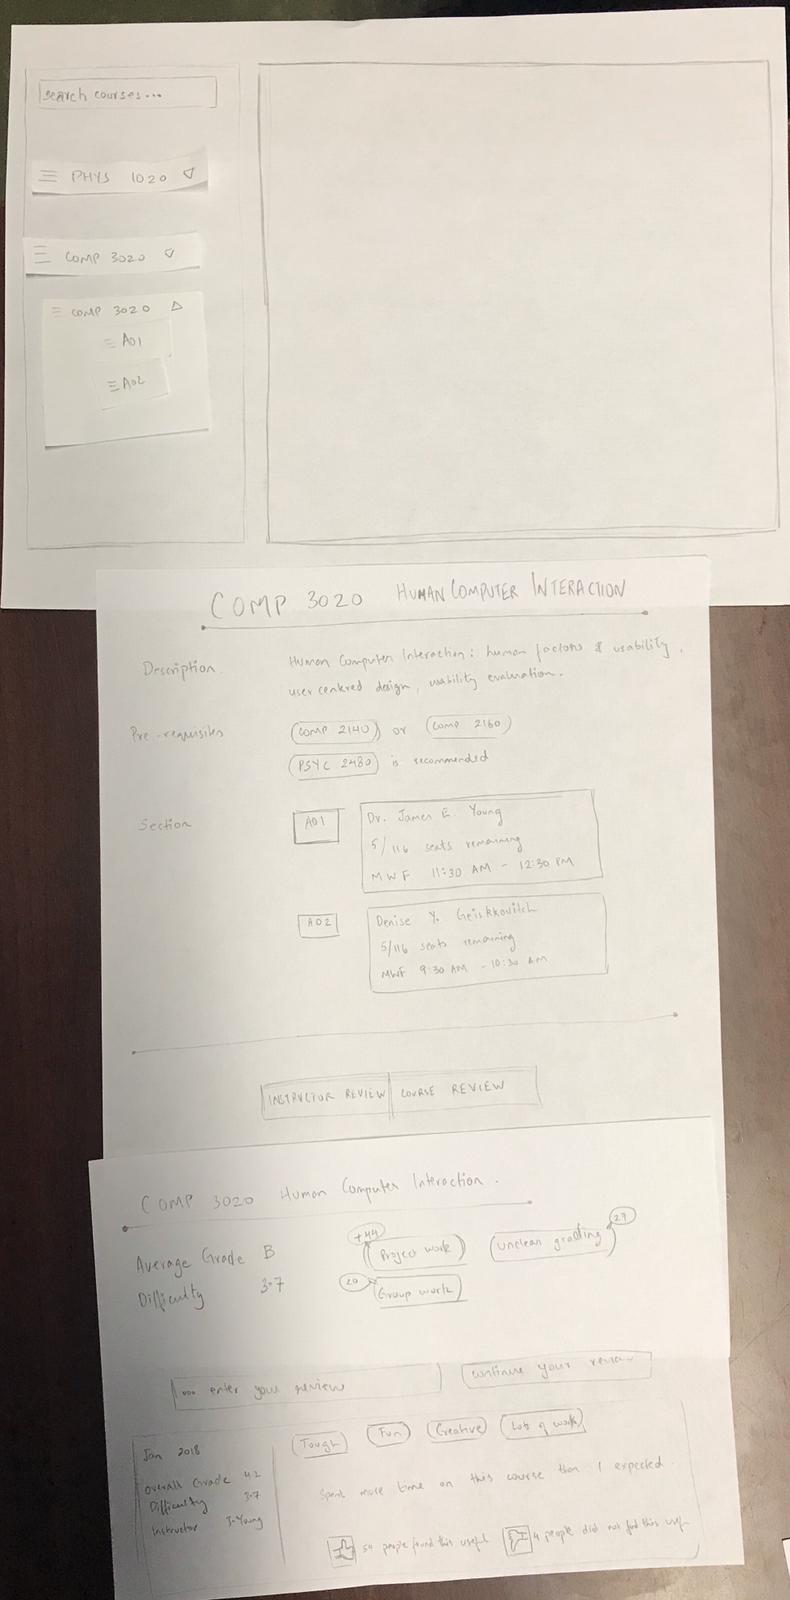 search courses...
PHYS 1020
COMP 3020
COMP 3020
A01
A02
COMP 3020 HUMAN COMPUTER INTERACTION
Description Human Computer Interaction: human factors & usability,
user centred design, usability evaluation.
Pre-requisites COMP 2140 or COMP 2160
PSYC 2480 is recommended
Section A01 Dr. James E. Young
5/116 seats remaining
MWF 11:30 AM - 12:30 PM
A02 Denise Y. Geiskkovitch
5/116 seats remaining
MWF 9:30 AM - 10:30 AM
INSTRUCTOR REVIEW COURSE REVIEW
COMP 3020 Human Computer Interaction.
Average Grade B +44 Project work Unclean grading 27
Difficulty 3.7 20 Group work
... enter your review continue your review
Jan 2018 Tough Fun Creative Lots of work
Overall Grade 4.2 Spent more time on this course than I expected.
Difficulty 3.7
Instructor J. Young
54 people found this useful 4 people did not find this useful